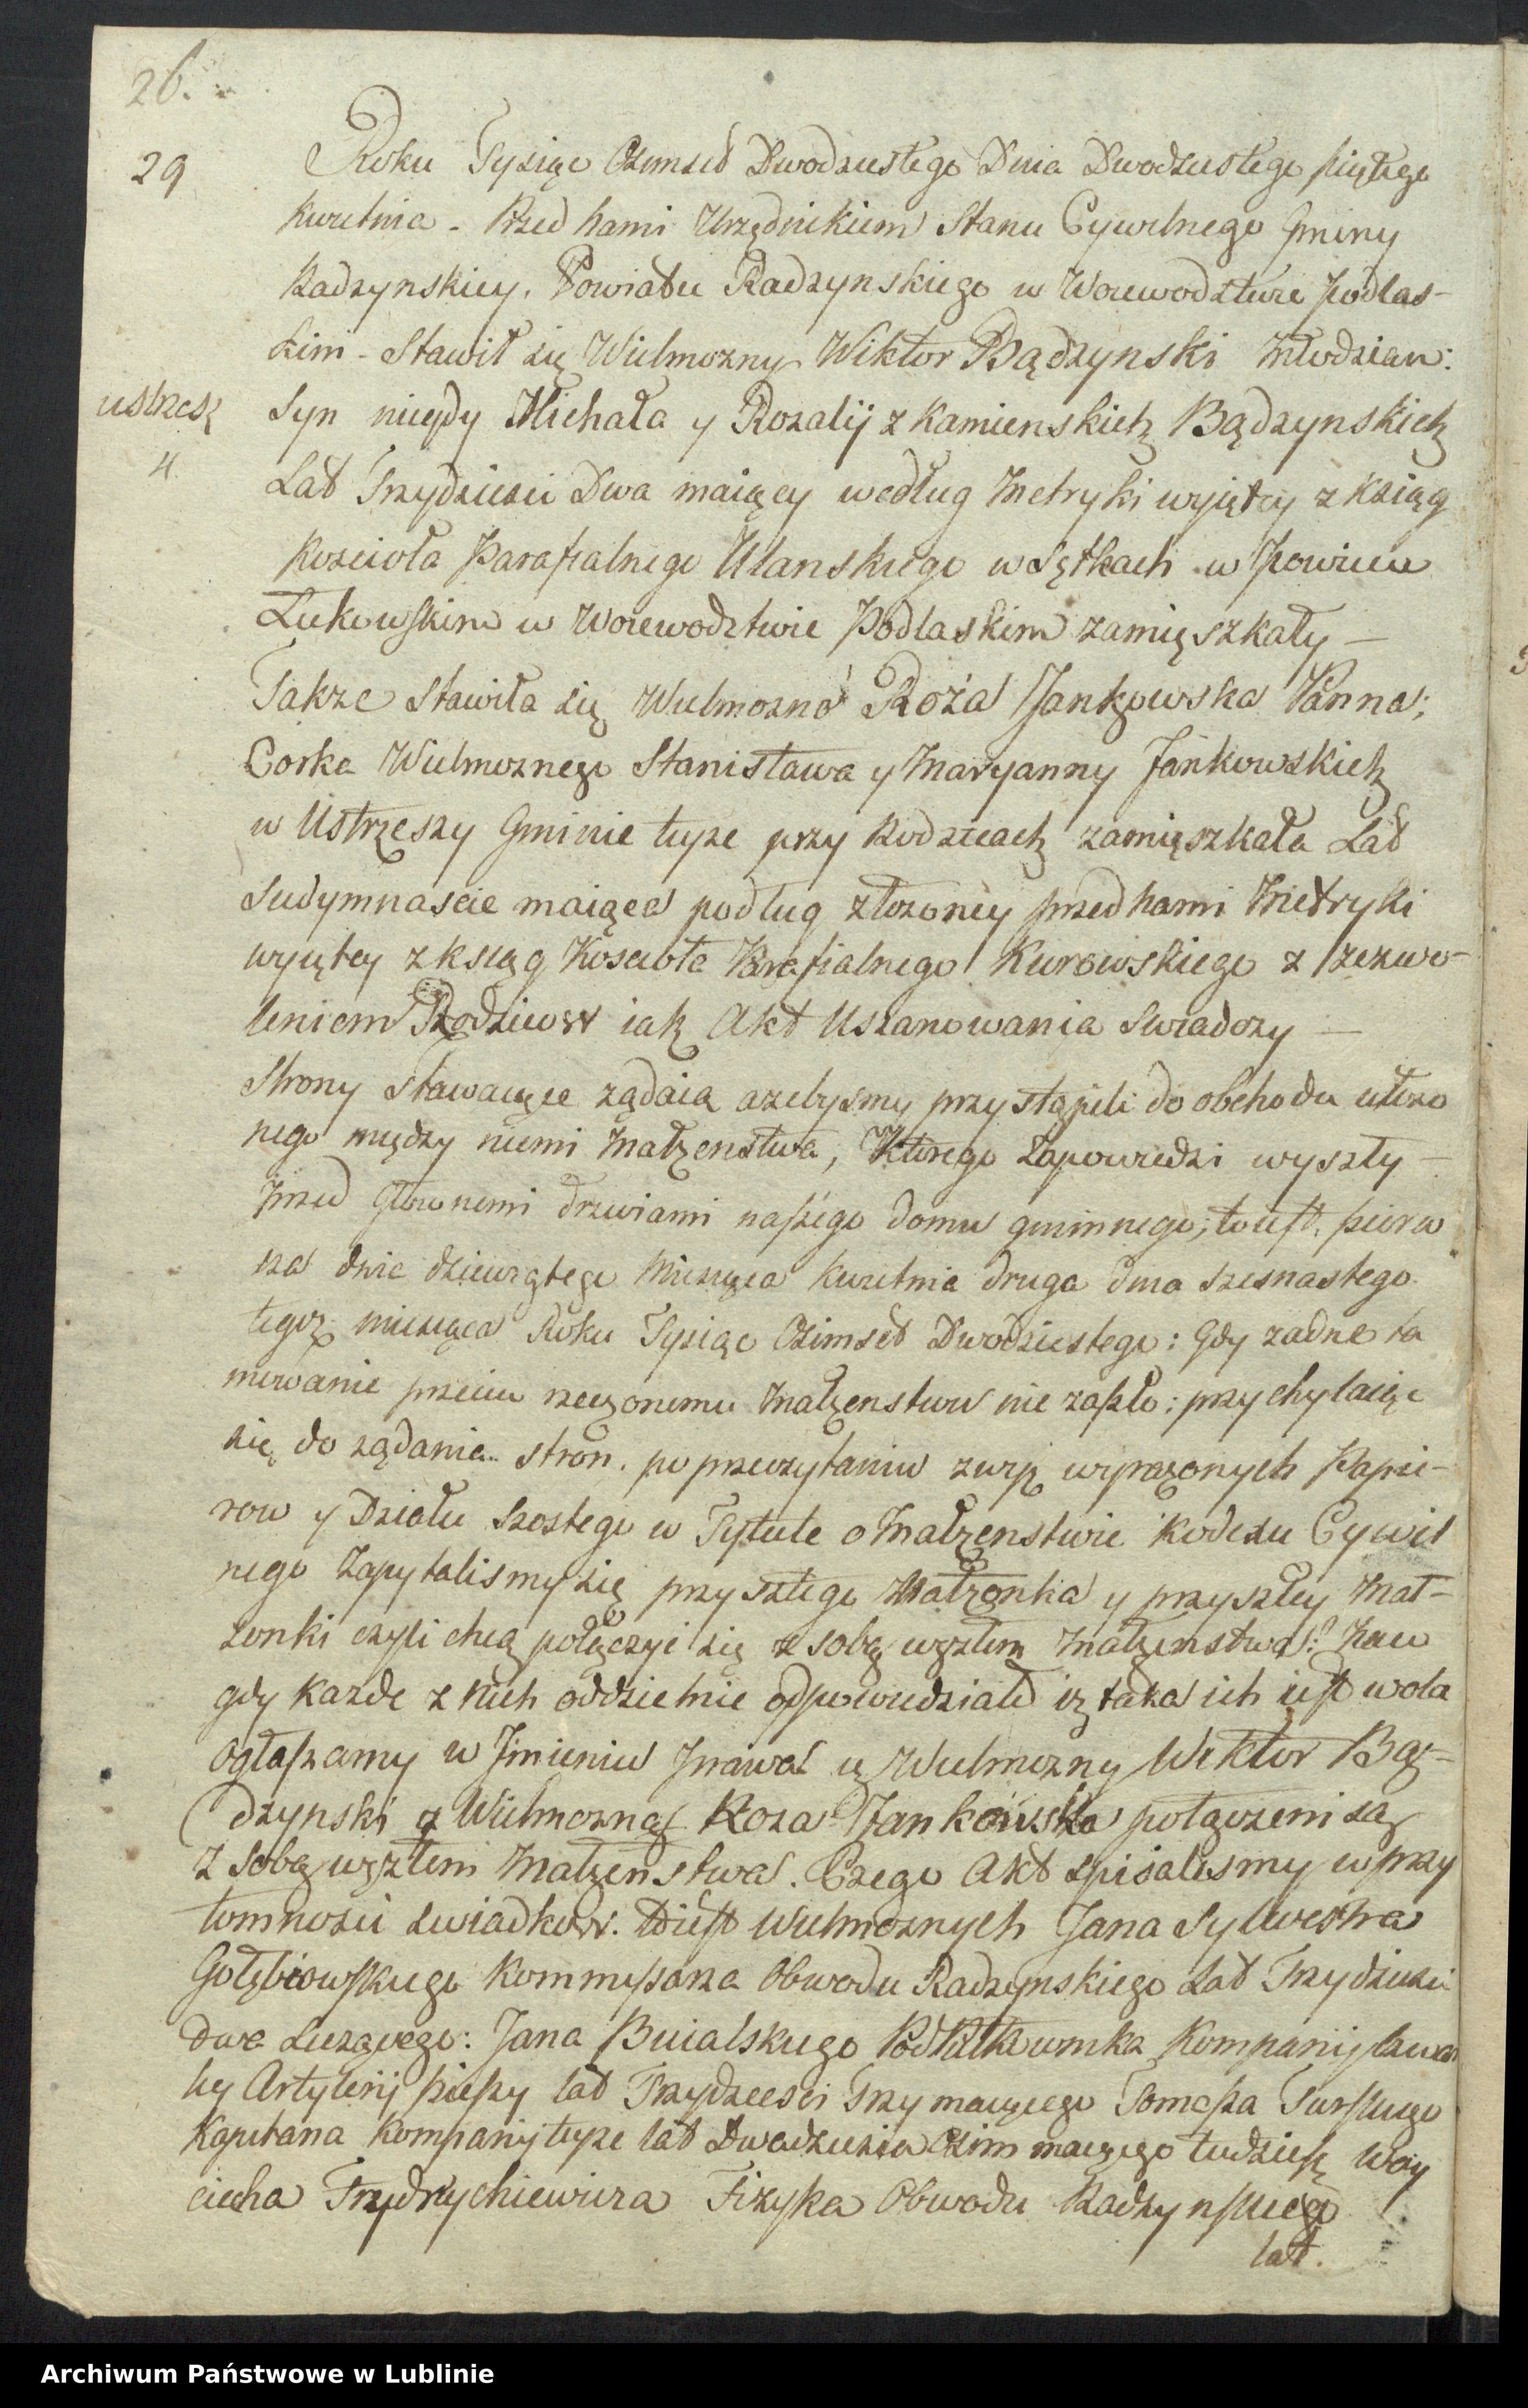 26.
29
Roku Tysiąc Osmset Dwodziestego Dnia Dwodziestego piątego
Kwietnia - Przed Nami Urzędnikiem Stanu Cywilnego Gminy
Radzynskiey, Powiatu Radzynskiego w Woiewodztwie Podlas-
kim - Stawił się Wielmozny Wiktor Bądzynski Młodzian:
ustrzesz
4.
Syn niegdy Michała y Rozalij z Kamienskich Bądzynskich
Lat Trzydziesci Dwa maiący według Metryki wyiętey z Ksiąg
Koscioła Parafialnego Ulanskiego w Sętkach w Powiecie
Łukowskim w Woiewodztwie Podlaskim zamięszkały —
Takze Stawiła się Wielmozna Roża Jankowska Panna;
Corka Wielmoznego Stanisława y Maryanny Jankowskich
w Ustrzeszy Gminie teyze przy Rodzicach zamięszkała Lat
Siedymnascie maiąca podług złozoney przed nami Metryki
wyiętey z ksiąg Koscioła Parafialnego Kurowskiego z zezwo-
leniem Rodzicow iak Akt Uszanowania Swiadczy —
Strony stawaiące ządaią azebysmy przystąpili do obchodu ułozo
nego między niemi Małzenstwa, Ktorego Zapowiedzi wyszły —
Przed głownemi drzwiami naszego domu gminnego; to iest. pierw
sza dnia dziewiątego Miesiąca Kwietnia druga dnia szesnastego
tegoz miesiąca Roku Tysiąc Osimset Dwodziestego: Gdy zadne ta
mowanie przeciw rzeczonemu Małzenstwu nie zaszło: przychylaiąc
się do ządania stron. po przeczytaniu zwyz wyrazonych Papie-
row y Działu Szostego w Tytule o Małzenstwie Kodexu Cywil
nego Zapytalismy się przyszłego Małzonka y przyszłey Mał-
zonki czyli chcą połączyć się z sobą węzłem Małzenstwa?
gdy kazde z nich oddzielnie odpowiedziało iz taka ich iest wola
Ogłaszamy w Jmieniu Prawa iz Wielmozny Wiktor Bą-
dzynski z Wielmozną Roza Jankowska połączeni są
z sobą węzłem Małzenstwa. Czego Akt spisalismy w przy
tomnosci swiadkow. to iest Wielmoznych Jana Sylwestra
Gołębiowskiego Kommissarza Obwodu Radzynskiego Lat Trzydziesci
dwa Liczącego: Jana Buialskiego Kompanij
Artylerij pieszy lat Trzydziesci Trzy maiącego Tomasza
Kapitana Kompanij teyze lat Dwadziescia Osim maiącego tudziesz Woy
ciecha Frydrychiewicza Fizyka Obwodu Radzynskiego
lat.
Archiwum Państwowe w Lublinie